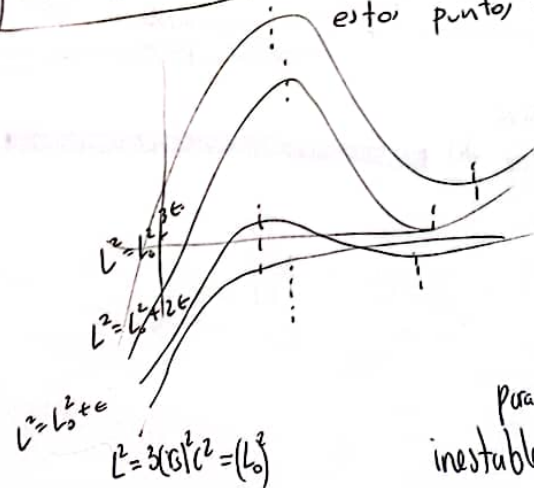 estos puntos
L² = L₀² 3ε
L² = L₀² + 2ε
L² = L₀² + ε
L² = 3(rs)²c² = (L₀)²
para
inestable